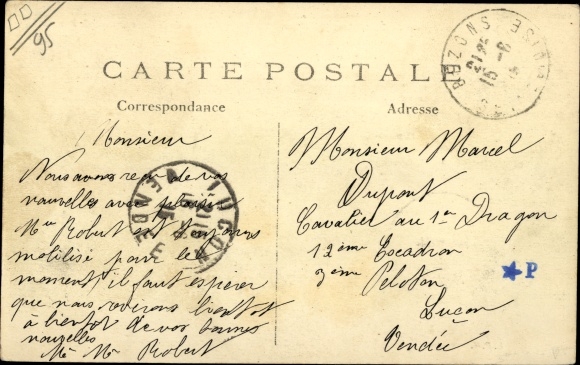 95
CARTE POSTALE
Correspondance
Adresse
BEZONS
OISE
15 -8
15
Monsieur
Nous avons reçu de vos
nouvelles avec plaisir
Mr Robert est toujours
mobilisé pour le
moment, il faut espérer
que nous reverrons bientôt
à bientôt de vos bonnes
nouvelles
Me Mr Robert
LUÇON
VENDEE
Monsieur Marcel
Dupont
Cavalier au 1er Dragon
12ème Escadron
3ème Peloton
Luçon
Vendée
P